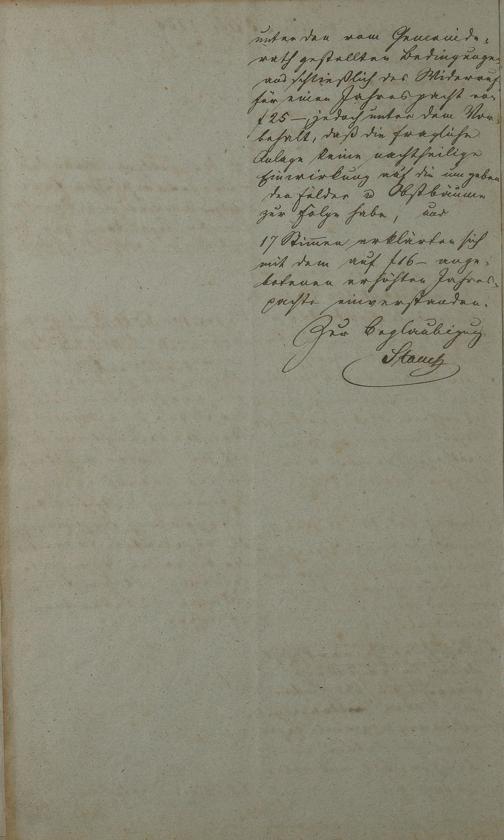 unter den vom Gemeinde-
rath gestellten Bedingungen
ausschließlich des Widerrufs
für einen Jahrespacht von
f 25 — jedoch unter dem Vor-
behalt, daß die fragliche
Anlage keine nachtheilige
Einwirkung auf die umgeben
den Felder u Obstbäume
zur Folge habe, und
17 Stimmen erklärten sich
mit dem auf f 16 — ange-
botenen erhöhten Jahres-
pachte einverstanden.
Zur Beglaubigung